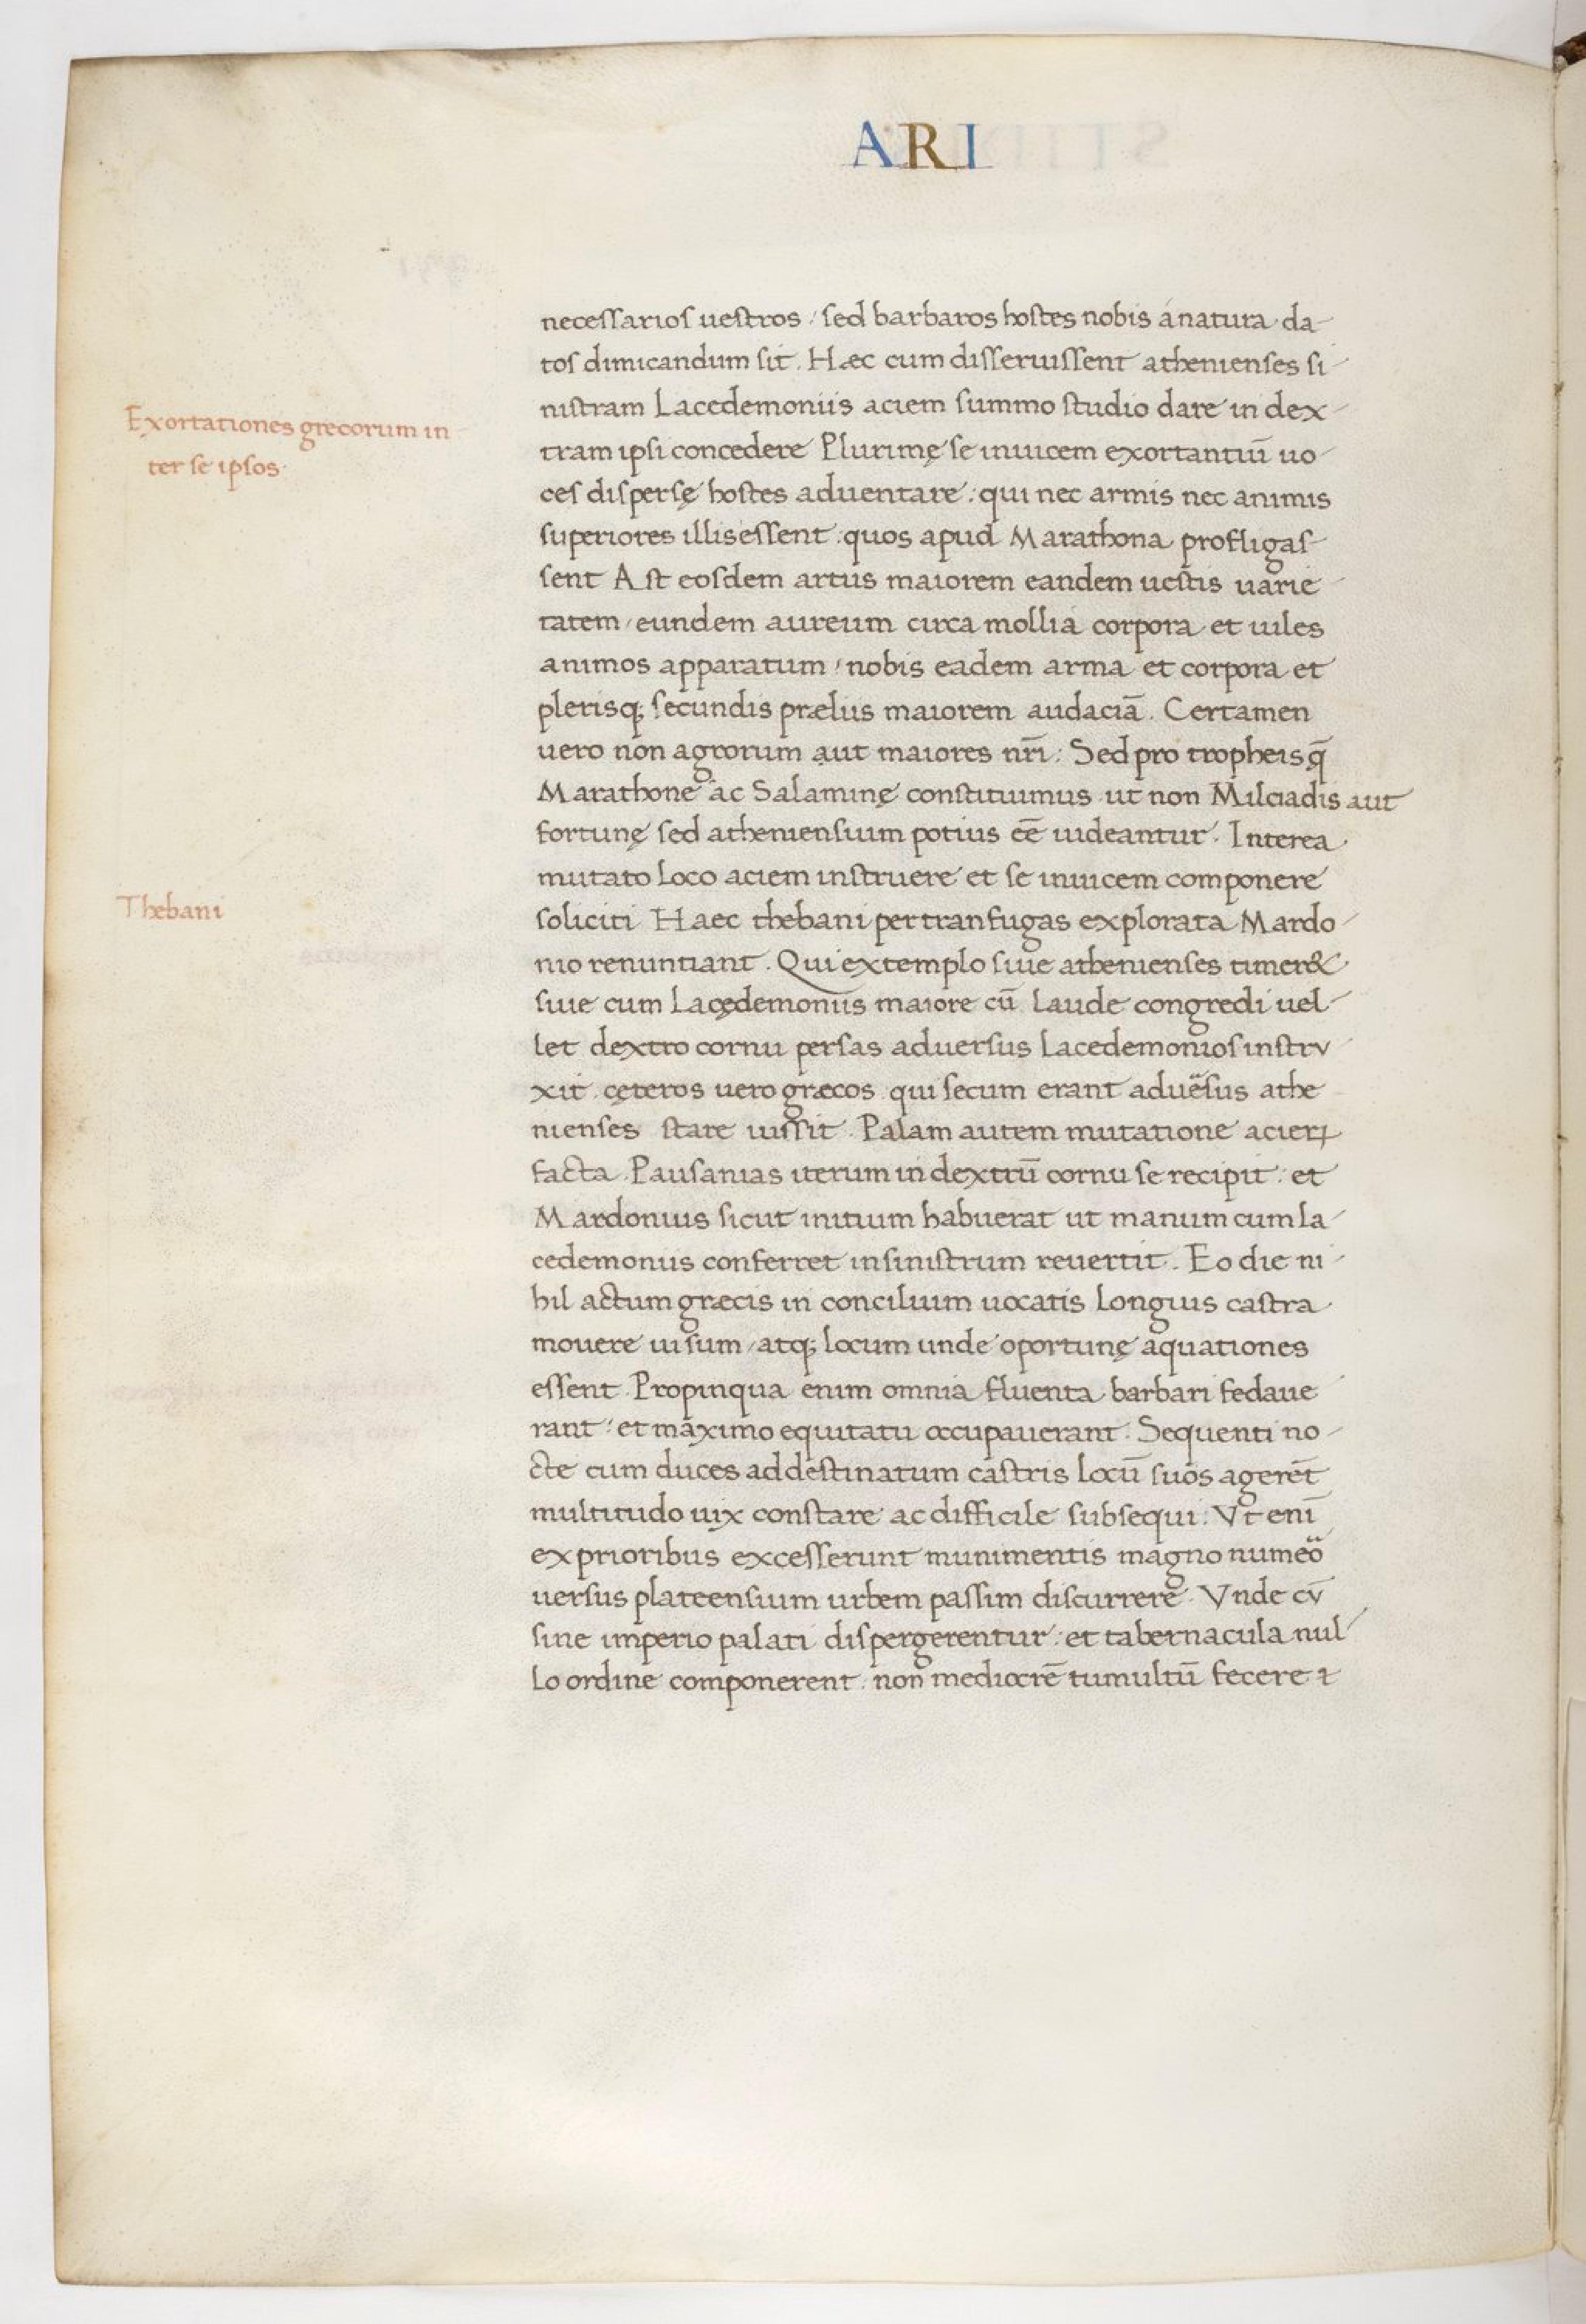 ARI
necessarios uestros / sed barbaros hostes nobis a natura da-
tos dimicandum sit. Hæc cum disseruissent athenienses si-
nistram Lacedemoniis aciem summo studio dare in dex-
Exortationes grecorum in-
tram ipsi concedere Plurimę se inuicem exortantiū uo-
ter se ipsos.
ces dispersę hostes aduentare: qui nec armis nec animis
superiores illis essent: quos apud Marathona profligas-
sent Ast eosdem artus maiorem eandem uestis uarie-
tatem / eundem aureum circa mollia corpora et uiles
animos apparatum / nobis eadem arma et corpora et
plerisq; secundis præliis maiorem audaciā. Certamen
uero non agrorum aut maiores nr̄i: Sed pro tropheis q̄
Marathone ac Salaminę constituimus ut non Milciadis aut
fortunę sed atheniensium potius eē uideantur. Interea
mutato loco aciem instruere et se inuicem componere
Thebani
soliciti Haec thebani per tranfugas explorata Mardo-
nio renuntiant. Qui extemplo siue athenienses timer&
siue cum Lacędemoniis maiore cū laude congredi uel-
let dextro cornu persas aduersus Lacedemonios instru-
xit cęteros uero græcos qui secum erant adue͛sus athe-
nienses stare iussit. Palam autem mutatione acieꝝ
facta. Pausanias iterum in dextrū cornu se recipit: et
Mardonius sicut initium habuerat ut manum cum la-
cedemoniis conferret in sinistrum reuertit. Eo die ni-
hil actum græcis in concilium uocatis longius castra
mouere uisum / atq; locum unde oportunę aquationes
essent. Propinqua enim omnia fluenta barbari fedaue-
rant: et maximo equitatu occupauerant. Sequenti no-
cte cum duces ad destinatum castris locū suos agerēt
multitudo uix constare ac difficile subsequi: Vt enī
ex prioribus excesserunt munimentis magno nume͛o
uersus plateensium urbem passim discurrere. Vnde cū
sine imperio palati dispergerentur: et tabernacula nul-
lo ordine componerent. non mediocrē tumultū fecere ⁊